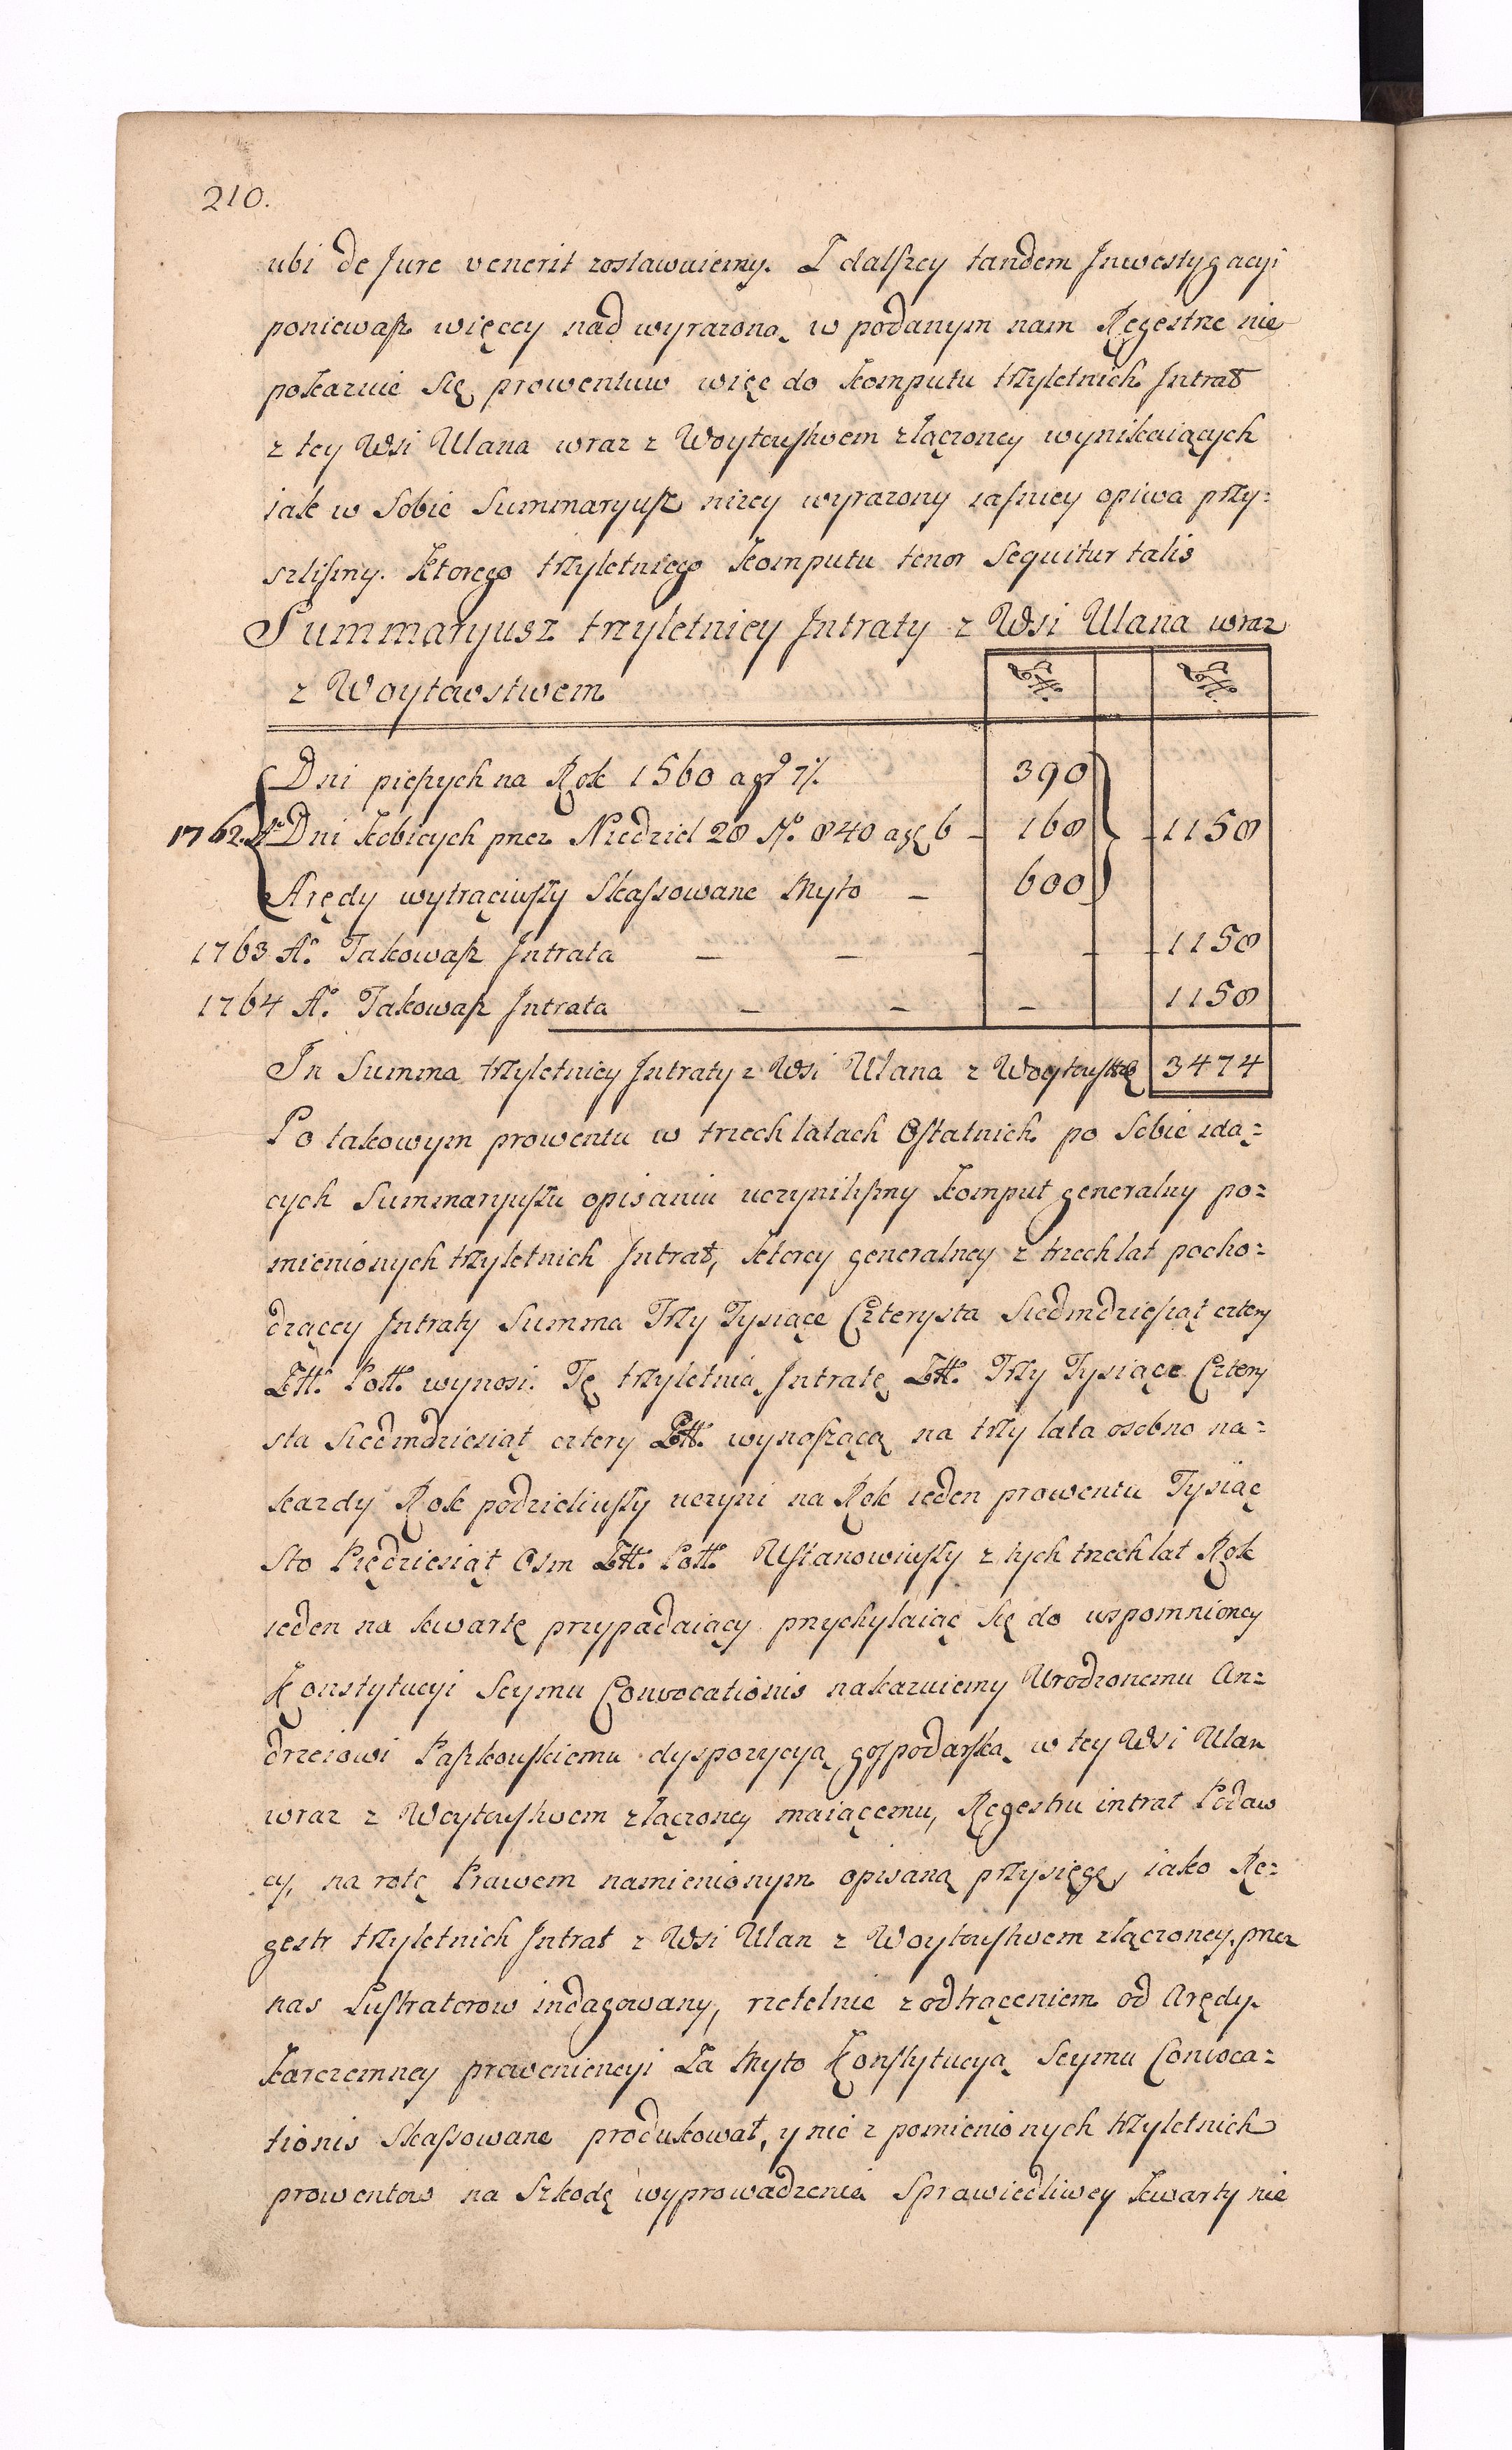 210.
ubi de Jure venerit zostawuiemy. Z dalszey tandem Jnwestygacyi
poniewasz więcey nad wyrazoną w podanym nam Regestrze nie
pokazuie Się prowentuw więc do komputu trzyletnich Jntrat
z tey Wsi Ulana wraz z Woytowstwem złączoney wynikaiących
iak w Sobie Summaryusz nizey wyrazony iasniey opiwa przy=
szlismy. Ktorego trzyletniego komputu tenor Sequitur talis
Summaryusz trzyletniey Jntraty z Wsi Ulana wraz
z Woytowstwem
Dni pieszych na Rok 1560 a gr 7½ 390
1762. Aº Dni kobicych przez Niedziel 28 Nº 840 a gr 6 – 168 – 1158
Arędy wytrąciwszy Skassowane Myto – 600
1763 Aº Takowasz Jntrata – – – – – 1158
1764 Aº Takowasz Jntrata – – – 1158
In Summa trzyletniey Jntraty z Wsi Ulana z Woytowstwe 3474
Po takowym prowentu w trzech latach Ostatnich po Sobie idą=
cych Summaryuszu opisaniu uczynilismy komput generalny po=
mienionych trzyletnich Jntrat, ktorey generalney z trzech lat pocho=
dzącey Jntraty Summa Trzy Tysiące Czterysta Siedmdziesiąt cztery
Złł. Poll. wynosi. Tę trzyletnią Jntratę Złł. Trzy Tysiące Cztery
sta Siedmdziesiąt cztery Złł. wynoszącą na trzy lata osobno na=
kazdy Rok podzieliwszy uczyni na Rok ieden prowentu Tysiąc
Sto Piędziesiąt Osm Złł. Poll. Ustanowiwszy z tych trzech lat Rok
ieden na kwartę przypadaiący przychylaiąc Się do wspomnioney
Konstytucyi Seymu Convocationis nakazuiemy Urodzonemu An=
drzeiowi Paszkowskiemu dyspozycyą gospodarską w tey Wsi Ulan
wraz z Woytowstwem złączoney maiącemu, Regestru intrat Podaw
cy, na rotę Prawem namienionym opisaną przysięgę, iako Re=
gestr trzyletnich Jntrat z Wsi Ulan z Woytowstwem złączoney, przez
nas Lustratorow indagowany, rzetelnie z odtrąceniem od Arędy
karczemney proweniencyi Za Myto Konstytucyą Seymu Convoca=
tionis Skassowane produkował, y nic z pomienionych trzyletnich
prowentow na Szkodę wyprowadzenia Sprawiedliwey kwarty nie